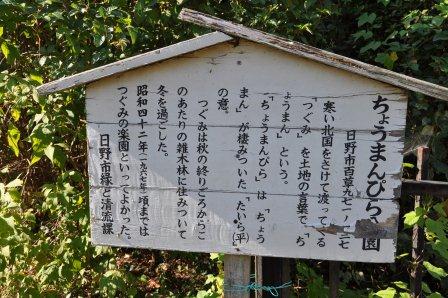 ちょうまんぴら公園
日野市百草九七一ノ一二七
寒い北国をさけて渡ってくる
「つぐみ」を土地の言葉で「ち
ょうまん」という。
「ちょうまんぴら」は「ちょう
まん」が棲みついた「たいら(平)」
の意。
つぐみは秋の終りごろからこ
のあたりの雑木林に住みついて
冬を過ごした。
昭和四十二年(一九六七年)頃までは
つぐみの楽園といってよかった。
日野市緑と清流課